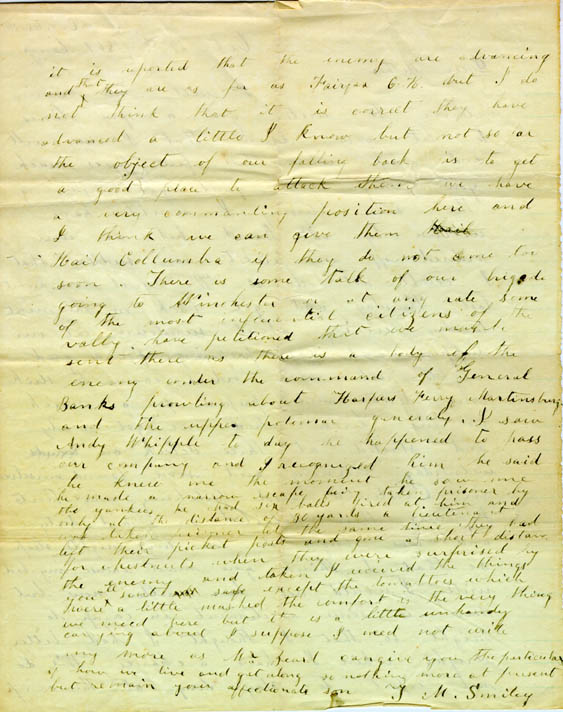 it is reported that the enemy are advancing
and that they are as far as Fairfax C. H. but I do
not think that it is correct they have
advanced a little I know but not so far
the object of our falling back is to get
a good place to attack them we have
a very commanding position here and
I think we can give them Hail
Hail Collumbia if they do not come too
soon. There is some talk of our brigade
going to Winchester or at any rate some
of the most influential citizens of the
vally have petitioned that we might
sent there as there is a body of the
enemy under the command of General
Banks prowling about Harpers Ferry Martinsburg
and the upper potomac generaly. I saw
Andy Whipple to day he happened to pass
our company and I recognized him he said
he knew me the moment he saw me
he made a narrow escape taken prisoner by
the yankees he had six balls fired at him and
only at the distance of 30 yards a lieutenant
was taken prisoner at the same time they had
left their picket posts and gone a short distance
for chestnuts when they were surprised by
the enemy and taken I received the things
you all sent safe except the tomattoes which
were a little mashed the comfort is the very thing
we need here but it is a little unhandy
carrying about I suppose I need not write
any more as Mr Beard can give you the particulars
of how we live and get along so nothing more at present
but remain your affectionate son T. M. Smiley